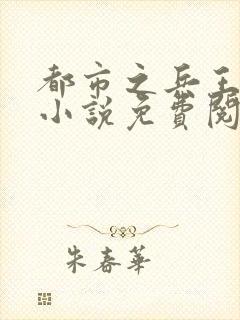 都市之兵王
小說免費閱
朱春華